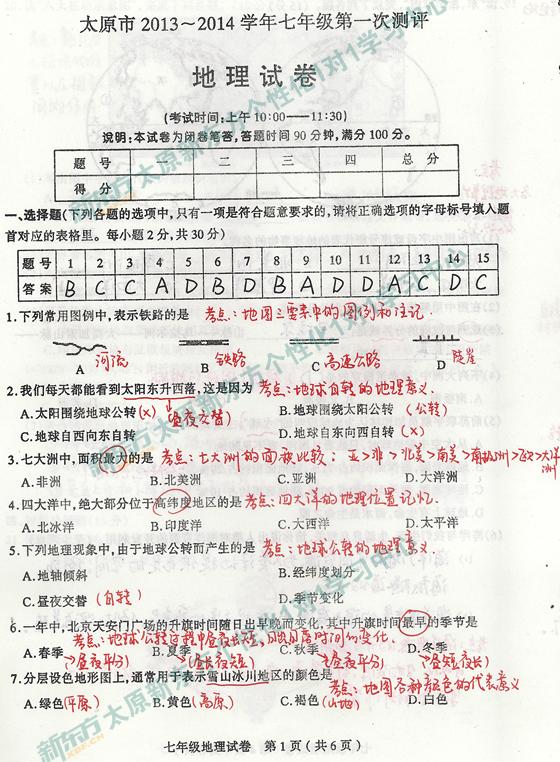 太原市2013～2014学年七年级第一次测评
地理试卷
(考试时间:上午10:00——11:30)
说明:本试卷为闭卷笔答,答题时间90分钟,满分100分。
题号 一 二 三 四 总分
得分
一、选择题(下列各题的选项中,只有一项是符合题意要求的,请将正确选项的字母标号填入题
首对应的表格里。每小题2分,共30分)
题号 1 2 3 4 5 6 7 8 9 10 11 12 13 14 15
答案 B C C A D B D A B D D A C D C
1.下列常用图例中,表示铁路的是 考点:地图三要素中的图例和注记.
A 河流 B 铁路 C 高速公路 D 陡崖
2.我们每天都能看到太阳东升西落,这是因为 考点:地球自转的地理意义.
A.太阳围绕地球公转(x) 昼夜交替) B.地球围绕太阳公转 (公转)
C.地球自西向东自转 D.地球自东向西自转(x)
3.七大洲中,面积最大的是 考点:七大洲的面积比较: 亚>非>北美>南美>南极洲>欧>大洋洲
A.非洲 B.北美洲 C.亚洲 D.大洋洲
4.四大洋中,绝大部分位于高纬度地区的是 考点:四大洋的地理位置记忆.
A.北冰洋 B.印度洋 C.大西洋 D.太平洋
5.下列地理现象中,由于地球公转而产生的是 考点:地球公转的地理意义.
A.地轴倾斜 B.经纬度划分
C.昼夜交替 (自转) D.季节变化
6.一年中,北京天安门广场的升旗时间随日出早晚而变化,其中升旗时间最早的季节是
考点:地球公转过程中昼夜长短,
A.春季 B.夏季 C.秋季 D.冬季
(昼夜平分) (昼长夜短) (昼夜平分) (昼短夜长)
7.分层设色地形图上,通常用于表示雪山冰川地区的颜色是 考点:地图各种颜色的代表意义
A.绿色(平原) B.黄色(高原) C.褐色(山地) D.白色
新东方太原新东方个性化1对1学习中心
七年级地理试卷 第1页(共6页)